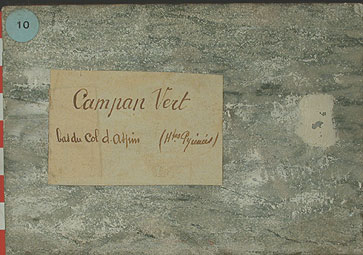 10
Campan Vert
bas du Col d'Aspin (Htes Pyrénées)